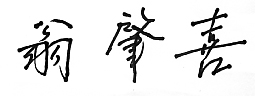 翁肇喜